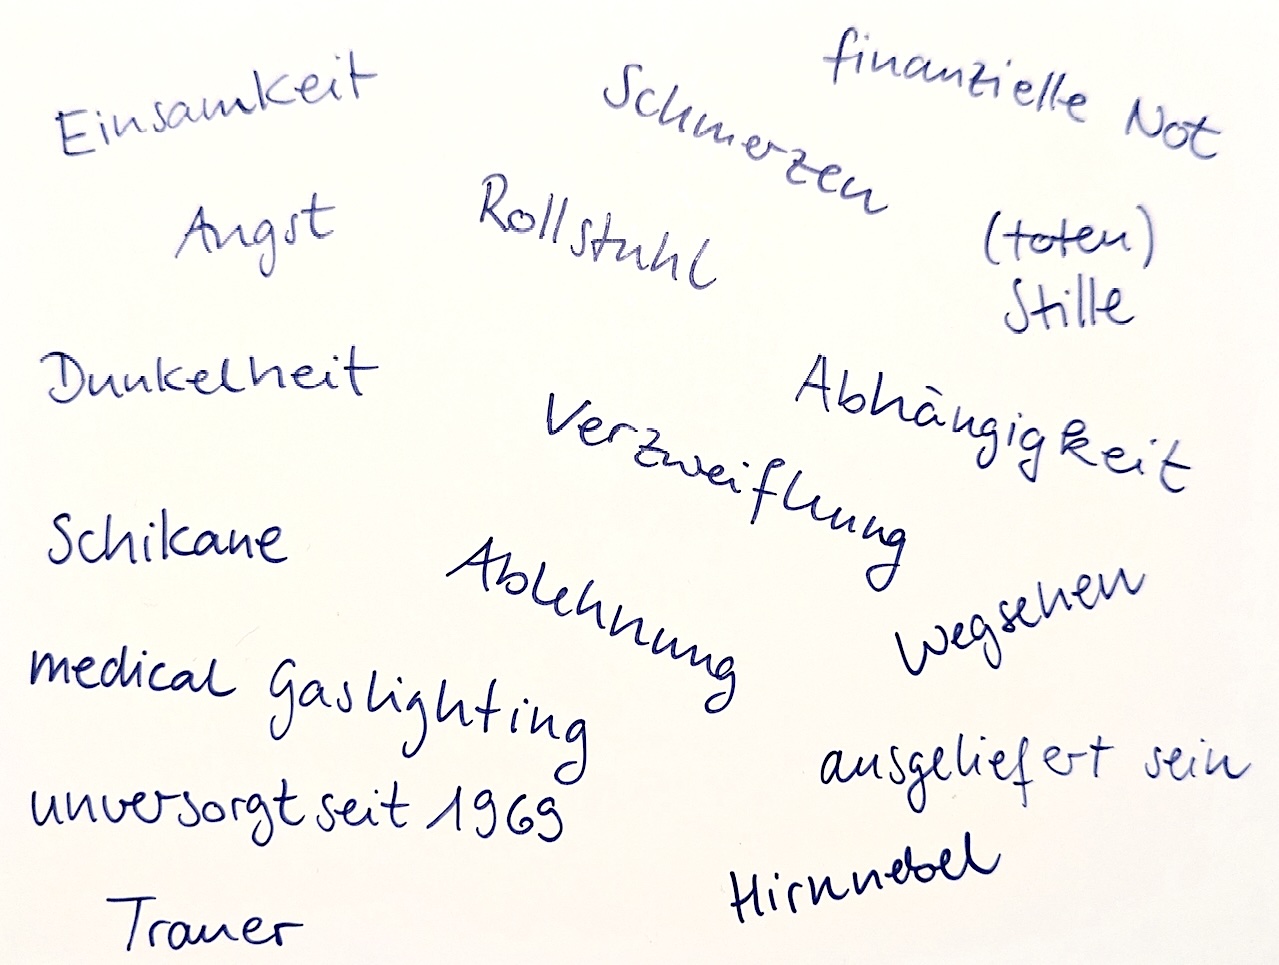 Einsamkeit
Schmerzen
finanzielle Not
Angst
Rollstuhl
(toten)
Stille
Dunkelheit
Verzweiflung
Abhängigkeit
Schikane
Ablehnung
Wegsehen
medical Gaslighting
ausgeliefert sein
unversorgt seit 1969
Hirnnebel
Trauer